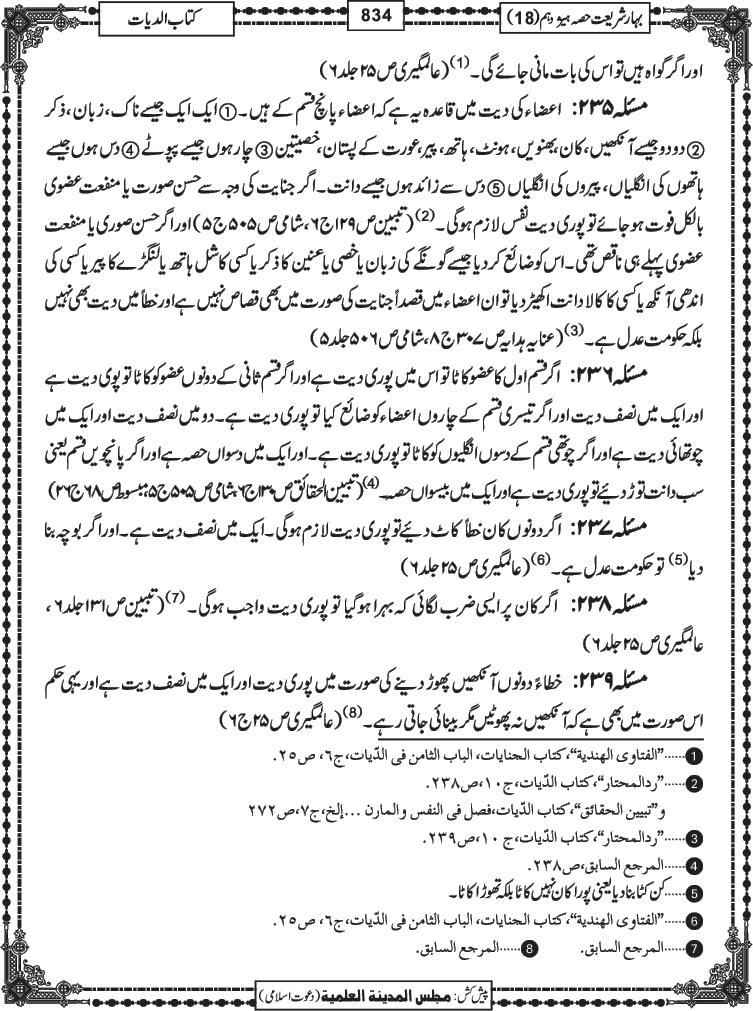 بہارِ شریعت حصہ ہیژدہم (18)
834
کتاب الدیات
اور اگر گواہ ہیں تو اس کی بات مانی جائے گی۔(1) (عالمگیری ص ۲۵ جلد ۶)
مسئلہ ۲۳۵: اعضاء کی دیت میں قاعدہ یہ ہے کہ اعضاء پانچ قسم کے ہیں۔ ① ایک ایک جیسے ناک، زبان، ذکر
② دو دو جیسے آنکھیں، کان، بھنویں، ہونٹ، ہاتھ، پیر، عورت کے پستان، خصیتین ③ چار ہوں جیسے پپوٹے ④ دس ہوں جیسے
ہاتھوں کی انگلیاں، پیروں کی انگلیاں ⑤ دس سے زائد ہوں جیسے دانت۔ اگر جنایت کی وجہ سے حسن صورت یا منفعت عضوی
بالکل فوت ہو جائے تو پوری دیت نفس لازم ہوگی۔(2) (تبیین ص ۱۲۹ ج ۶، شامی ص ۵۰۵ ج ۵) اور اگر حسن صوری یا منفعت
عضوی پہلے ہی ناقص تھی۔ اس کو ضائع کر دیا جیسے گونگے کی زبان یا خصی یا عنین کا ذکر یا کسی کا شل ہاتھ یا لنگڑے کا پیر یا کسی کی
اندھی آنکھ یا کسی کا کالا دانت اکھیڑ دیا تو ان اعضاء میں قصداً جنایت کی صورت میں بھی قصاص نہیں ہے اور خطأً میں دیت بھی نہیں
بلکہ حکومت عدل ہے۔(3) (عنایہ ہدایہ ص ۳۰۷ ج ۸، شامی ص ۵۰۶ جلد ۵)
مسئلہ ۲۳۶: اگر قسم اول کا عضو کاٹا تو اس میں پوری دیت ہے اور اگر قسم ثانی کے دونوں عضو کو کاٹا تو پوی دیت ہے
اور ایک میں نصف دیت اور اگر تیسری قسم کے چاروں اعضاء کو ضائع کیا تو پوری دیت ہے۔ دو میں نصف دیت اور ایک میں
چوتھائی دیت ہے اور اگر چوتھی قسم کے دسوں انگلیوں کو کاٹا تو پوری دیت ہے۔ اور ایک میں دسواں حصہ ہے اور اگر پانچویں قسم یعنی
سب دانت توڑ دیئے تو پوری دیت ہے اور ایک میں بیسواں حصہ۔(4) (تبیین الحقائق ص ۱۳۰ ج ۶، شامی ص ۵۰۵ ج ۵، مبسوط ص ۶۸ ج ۲۶)
مسئلہ ۲۳۷: اگر دونوں کان خطأً کاٹ دیئے تو پوری دیت لازم ہوگی۔ ایک میں نصف دیت ہے۔ اور اگر بوچہ بنا
دیا(5) تو حکومت عدل ہے۔(6) (عالمگیری ص ۲۵ جلد ۶)
مسئلہ ۲۳۸: اگر کان پر ایسی ضرب لگائی کہ بہرا ہو گیا تو پوری دیت واجب ہوگی۔(7) (تبیین ص ۱۳۱ جلد ۶،
عالمگیری ص ۲۵ جلد ۶)
مسئلہ ۲۳۹: خطاءً دونوں آنکھیں پھوڑ دینے کی صورت میں پوری دیت اور ایک میں نصف دیت ہے اور یہی حکم
اس صورت میں بھی ہے کہ آنکھیں نہ پھوٹیں مگر بینائی جاتی رہے۔(8) (عالمگیری ص ۲۵ ج ۶)
1 ......"الفتاوی الھندیة"، کتاب الجنایات، الباب الثامن فی الدّیات، ج٦، ص٢٥.
2 ......"ردالمحتار"، کتاب الدّیات، ج١٠، ص٢٣٨.
و"تبیین الحقائق"، کتاب الدّیات، فصل فی النفس والمارن ...إلخ، ج٧، ص٢٧٢
3 ......"ردالمحتار"، کتاب الدّیات، ج١٠، ص٢٣٩.
4 ......المرجع السابق، ص٢٣٨.
5 ......کن کٹا بنا دیا یعنی پورا کان نہیں کاٹا بلکہ تھوڑا کاٹا۔
6 ......"الفتاوی الھندیة"، کتاب الجنایات، الباب الثامن فی الدّیات، ج٦، ص٢٥.
7 ......المرجع السابق. 8 ......المرجع السابق.
پیش کش: مجلس المدینة العلمیة (دعوتِ اسلامی)